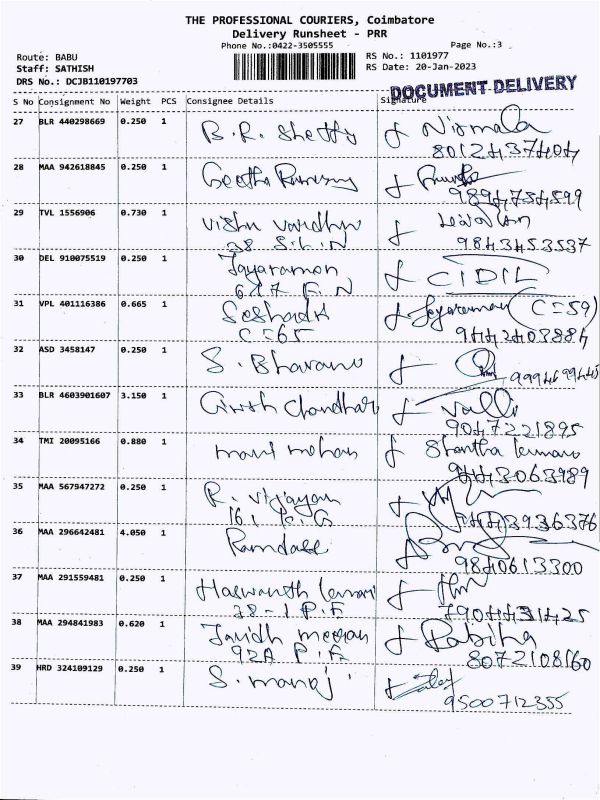 THE PROFESSIONAL COURIERS, Coimbatore
Delivery Runsheet - PRR
Phone No.:0422-3505555 Page No.:3
Route: BABU RS No.: 1101977
Staff: SATHISH RS Date: 20-Jan-2023
DRS No.: DCJB110197703
DOCUMENT DELIVERY
S No Consignment No Weight PCS Consignee Details Signature
27 BLR 440298669 0.250 1 B.R. Shetty Nirmala
8012437404
28 MAA 942618845 0.250 1 Geetha
9894754599
29 TVL 1556906 0.730 1 Vishnu Vardhan
38 S.L.N 9843453537
30 DEL 910075519 0.250 1 Jayaraman CIDIL
617 F.N
31 VPL 401116386 0.665 1 Seshadri Jeyaraman (C=59)
C=65 9442403884
32 ASD 3458147 0.250 1 S. Bhavani
33 BLR 4603901607 3.150 1 Girish Chandhar Valli
9047221895
34 TMI 20095166 0.880 1 mohan Shantha
9443063989
35 MAA 567947272 0.250 1 R. Vijayan
16.1 K.G 9443936376
36 MAA 296642481 4.050 1 Ramdass
9840613300
37 MAA 291559481 0.250 1 Haswanth
38-1 P.F 7904431425
38 MAA 294841983 0.620 1 Javidh meeran Rabiha
92A P.F 8072108160
39 HRD 324109129 0.250 1 S. manoj
9500712355